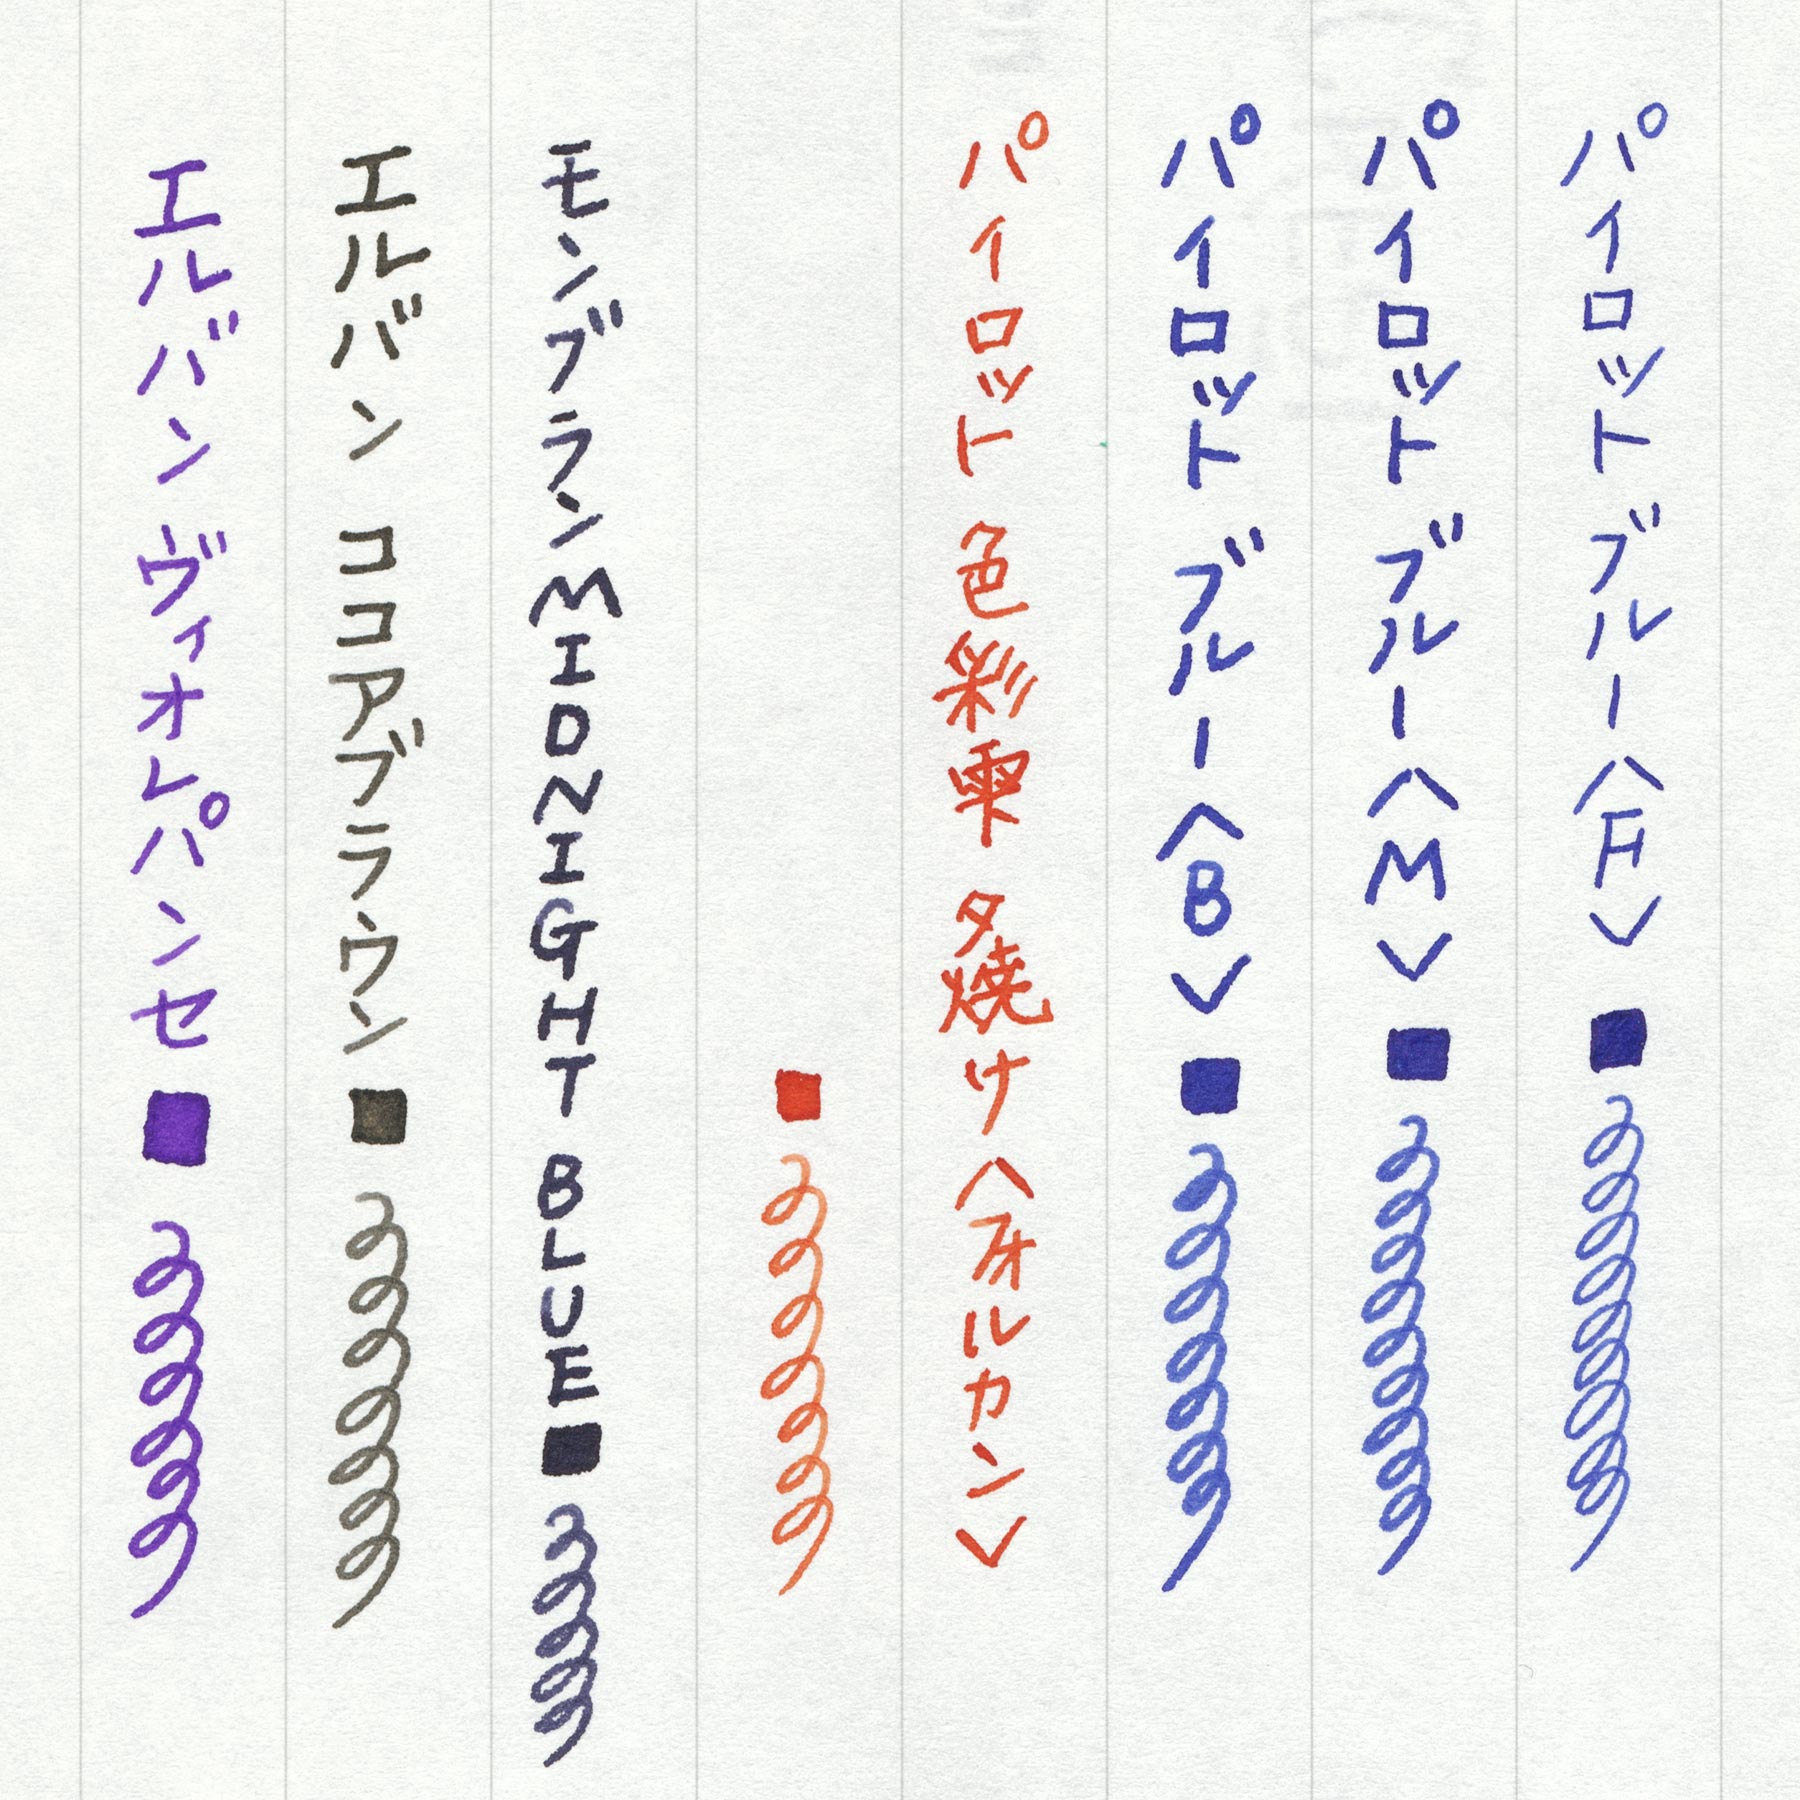 パイロット ブルー〈F〉
パイロット ブルー〈M〉
パイロット ブルー〈B〉
パイロット 色彩雫 夕焼け〈オルカン〉
モンブラン MIDNIGHT BLUE
エルバン ココアブラウン
エルバン ヴィオレパンセ